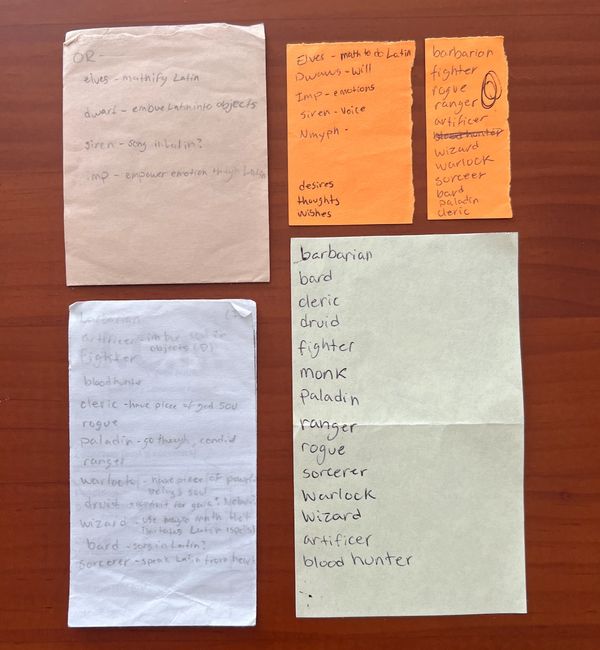 OR -
elves - mathify Latin
dwarf - embue Latin into objects
siren - song in Latin?
imp - empower emotion though Latin
Elves - math to do Latin
Dwavs - Will
Imp - emotions
siren - voice
Nmyph -
desires
thoughts
wishes
barbarian
fighter
rogue
ranger
artificer
blood hunter
wizard
warlock
sorceer
bard
paladin
cleric
barbarian
artificer - imbue
objects (D)
fighter
bloodhunter
cleric - have piece of god soul
rogue
paladin - go though,
ranger
warlock - have piece of power
being's soul
druid -
wizard - use magic math that
Latin
bard - song in Latin?
sorcerer - speak Latin from heart
barbarian
bard
cleric
druid
fighter
monk
Paladin
ranger
rogue
sorcerer
Warlock
Wizard
artificer
blood hunter